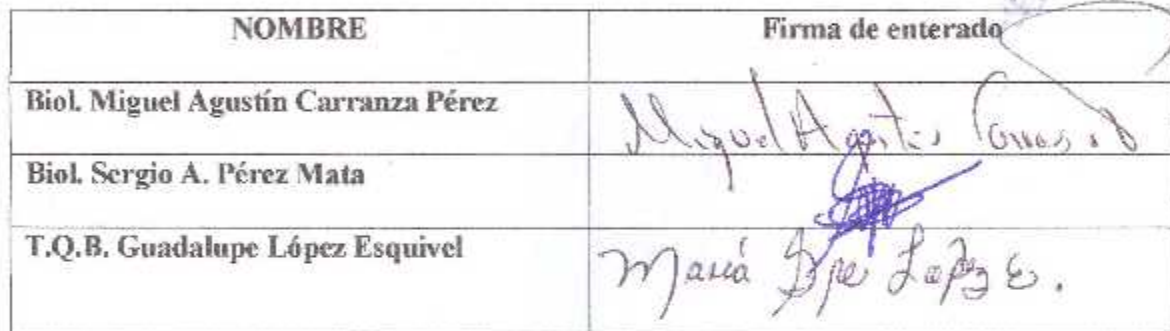 NOMBRE Firma de enterado
Biol. Miguel Agustín Carranza Pérez Miguel Agustin
Biol. Sergio A. Pérez Mata
T.Q.B. Guadalupe López Esquivel María Gpe Lopez E.